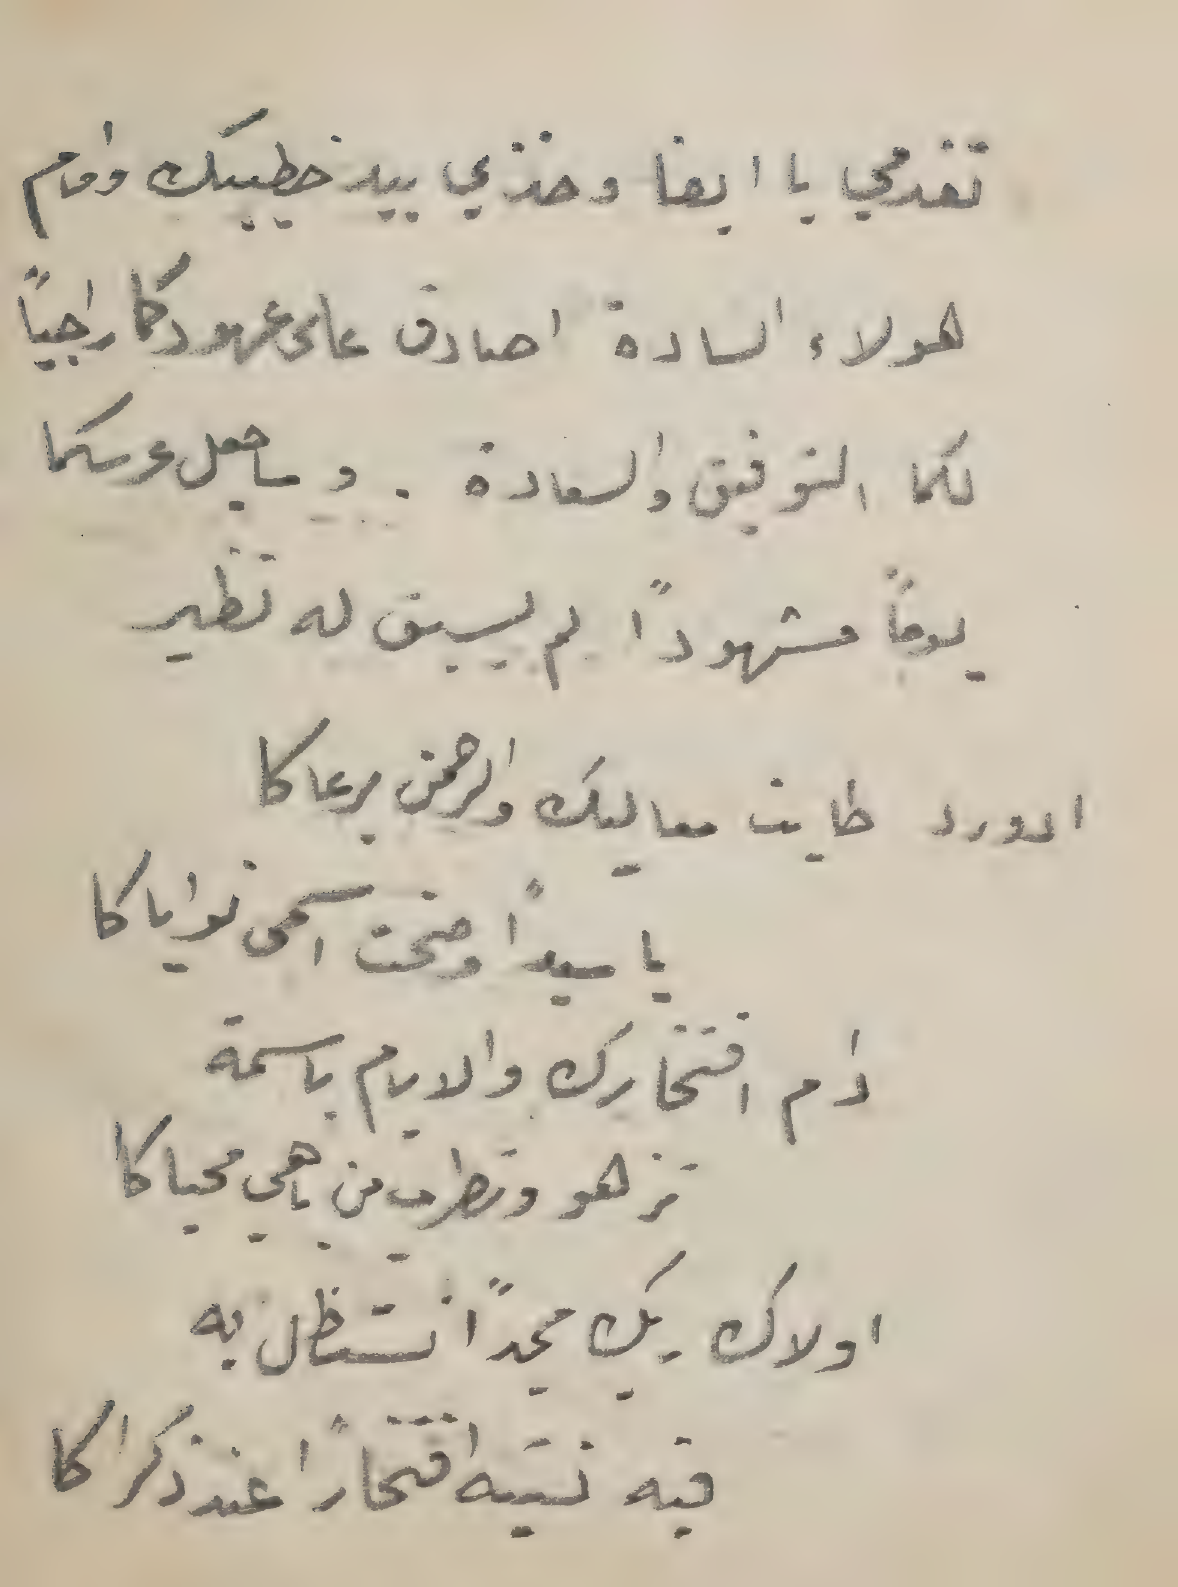 تقدمي يا ايفا وخذي بيد خطيبك وامام
هولاء السادة اصادق على عهودكما راجياً
لكما التوفيق والسعادة . وساجعل عرسكما
يوماً مشهوداً لم يسبق له نظير
ادورد طابت معاليك والرحمن يرعاكا
يا سيداً وضحت اسمى نواياكا
دام افتخارك والايام باسمة
تزهو وتطرب من باهي محياكا
اولاك ربك مجداً نستظل به
فيه نتيه افتخاراً عند ذكراكا